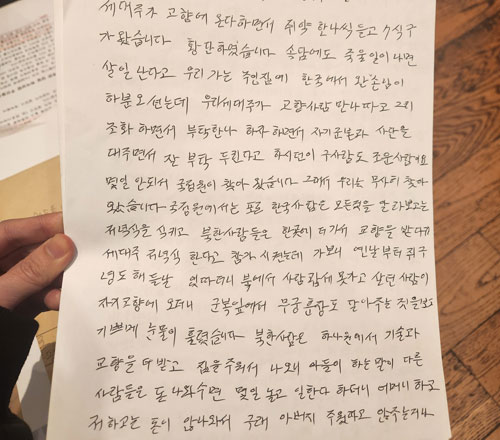 세대주가 고향에 온다하면서 쥐약 한나씩 들고 7식구
가 왔습니다 황단하였습니다 속담에도 죽울일이 나면
살일 난다고 우리 가는 주인집에 한국에서 왼손님이
하분오셨는데 우리세대주가 고향사람 만나따고 그리
조화 하면서 부탁한나 하자 하면서 자기군번과 사단을
대주면서 잘 부탁 두린다고 하시던이 구사람도 조운사람가요
몇일 안되서 국정원이 찾아 왔습니다 그래서 우리는 무사히 찾아
왔습니다 국정원에서는 포로 한국사람은 모든것을 알라보고는
저녁식을 식키고 북한사람들은 한곳에 더가서 교향을 받다가
세대주 저녁식 한다고 참가 시켰는데 가보니 옛날부터 쥐구
넝도 해 들날 있다더니 북에서 사람갑세 못가고 살던 사람이
자기고향에 오더니 군복입에서 무궁훈장도 달아주는 것을보고
기쁘게 눈물이 흘렸습니다 북한사람은 하나원에서 기술과
교향을 더 받고 집을주워서 나오니 아들이 하는말이 다른
사람들은 또 나와수면 몇일 놀고 일한다 하더니 어머니 하고
저하고는 돈이 않나와서 구래 아버지 주웠다고 않주는거나